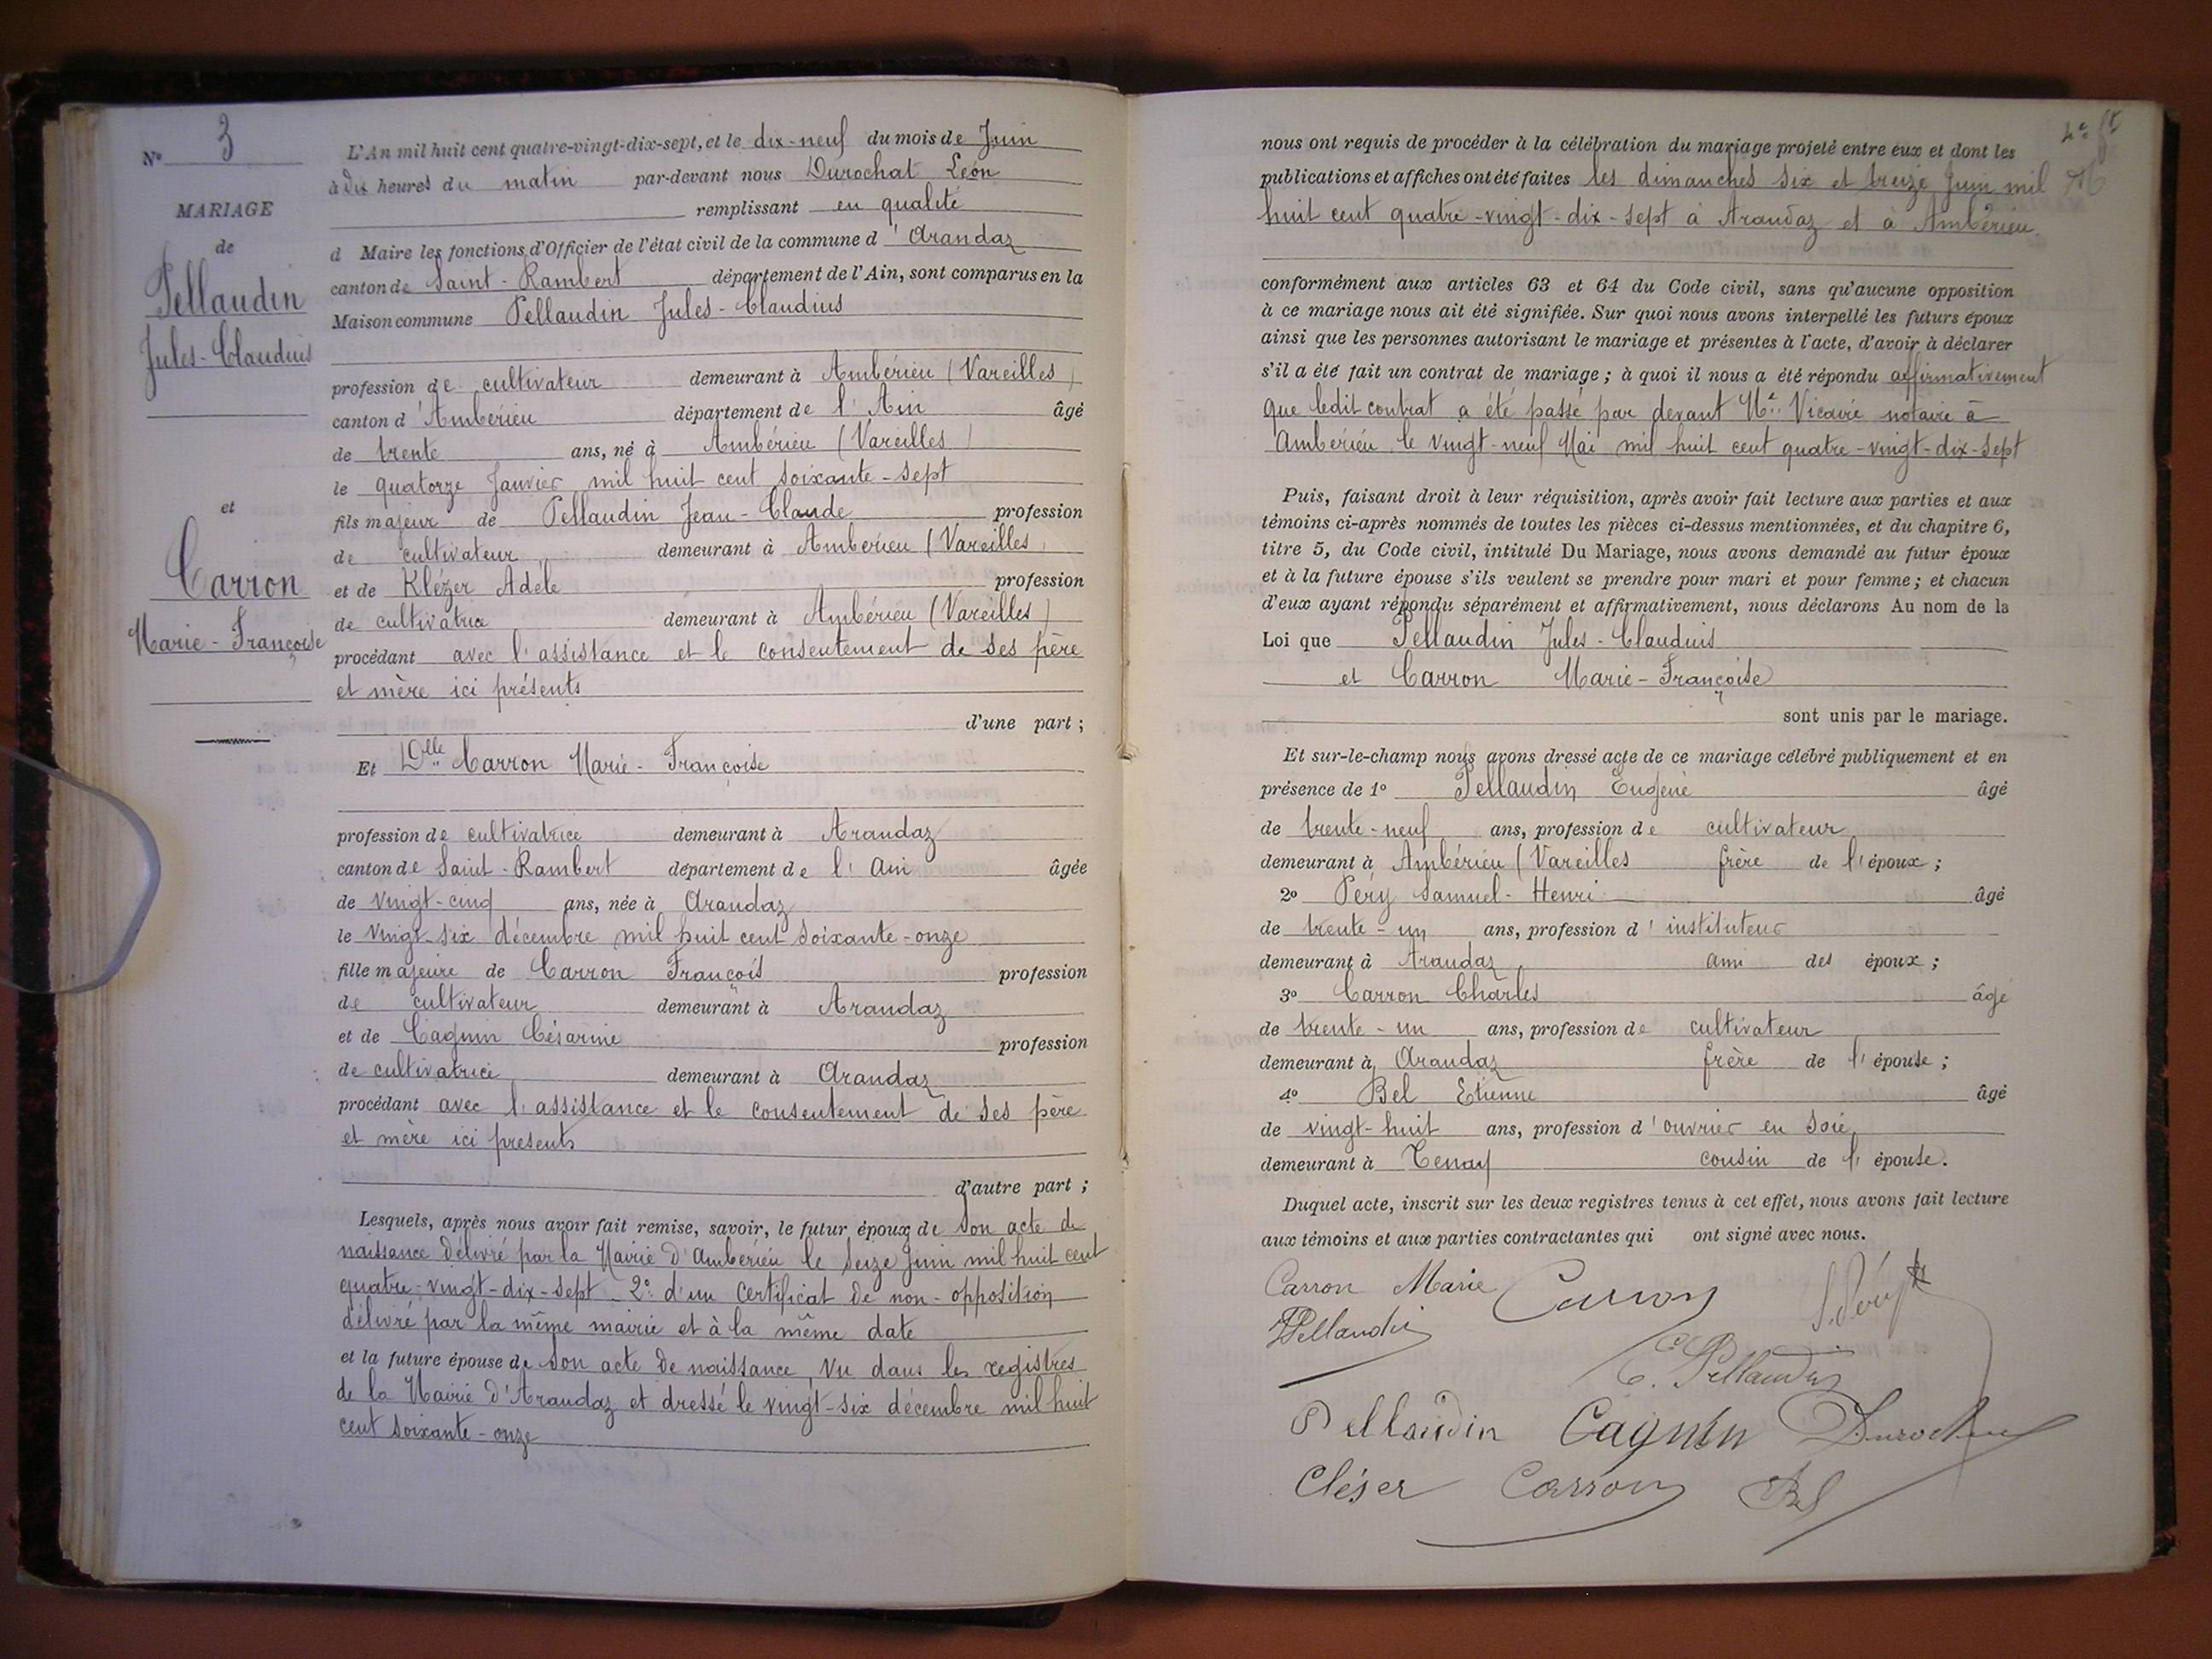 N° 3
MARIAGE
de
Pellaudin
Jules-Claudius
et
Carron
Marie-Françoise
L'An mil huit cent quatre-vingt-dix-sept, et le dix-neuf du mois de Juin
à dix heures du matin par-devant nous Durochat Léon
remplissant en qualité
d Maire les fonctions d'Officier de l'état civil de la commune d' Arandaz
canton de Saint-Rambert département de l'Ain, sont comparus en la
Maison commune Pellaudin Jules-Claudius
profession de cultivateur demeurant à Ambérieu (Vareilles)
canton d'Ambérieu département de l'Ain âgé
de trente ans, né à Ambérieu (Vareilles)
le quatorze Janvier mil huit cent soixante-sept
fils majeur de Pellaudin Jean-Claude profession
de cultivateur demeurant à Ambérieu (Vareilles)
et de Klézer Adèle profession
de cultivatrice demeurant à Ambérieu (Vareilles)
procédant avec l'assistance et le consentement de ses père
et mère ici présents
d'une part ;
Et Dlle Carron Marie-Françoise
profession de cultivatrice demeurant à Arandaz
canton de Saint-Rambert département de l'Ain âgée
de vingt-cinq ans, née à Arandaz
le vingt-six décembre mil huit cent soixante-onze
fille majeure de Carron François profession
de cultivateur demeurant à Arandaz
et de Cagnin Césarine profession
de cultivatrice demeurant à Arandaz
procédant avec l'assistance et le consentement de ses père
et mère ici présents
d'autre part ;
Lesquels, après nous avoir fait remise, savoir, le futur époux de son acte de
naissance délivré par la Mairie d'Ambérieu le seize Juin mil huit cent
quatre-vingt-dix-sept - 2° d'un certificat de non-opposition
délivré par la même mairie et à la même date
et la future épouse de son acte de naissance, vu dans les registres
de la Mairie d'Arandaz et dressé le vingt-six décembre mil huit
cent soixante-onze
nous ont requis de procéder à la célébration du mariage projeté entre eux et dont les
publications et affiches ont été faites les dimanches six et treize Juin mil
huit cent quatre-vingt-dix-sept à Arandaz et à Ambérieu
conformément aux articles 63 et 64 du Code civil, sans qu'aucune opposition
à ce mariage nous ait été signifiée. Sur quoi nous avons interpellé les futurs époux
ainsi que les personnes autorisant le mariage et présentes à l'acte, d'avoir à déclarer
s'il a été fait un contrat de mariage ; à quoi il nous a été répondu affirmativement
que ledit contrat a été passé par devant Me Vicaire notaire à
Ambérieu le vingt-neuf Mai mil huit cent quatre-vingt-dix-sept
Puis, faisant droit à leur réquisition, après avoir fait lecture aux parties et aux
témoins ci-après nommés de toutes les pièces ci-dessus mentionnées, et du chapitre 6,
titre 5, du Code civil, intitulé Du Mariage, nous avons demandé au futur époux
et à la future épouse s'ils veulent se prendre pour mari et pour femme ; et chacun
d'eux ayant répondu séparément et affirmativement, nous déclarons Au nom de la
Loi que Pellaudin Jules-Claudius
et Carron Marie-Françoise
sont unis par le mariage.
Et sur-le-champ nous avons dressé acte de ce mariage célébré publiquement et en
présence de 1° Pellaudin Eugène âgé
de trente-neuf ans, profession de cultivateur
demeurant à Ambérieu (Vareilles frère de l'époux ;
2° Péry Samuel-Henri âgé
de trente-un ans, profession d'instituteur
demeurant à Arandaz ami des époux ;
3° Carron Charles âgé
de trente-un ans, profession de cultivateur
demeurant à Arandaz frère de l'épouse ;
4° Bel Etienne âgé
de vingt-huit ans, profession d'ouvrier en soie
demeurant à Tenay cousin de l'épouse.
Duquel acte, inscrit sur les deux registres tenus à cet effet, nous avons fait lecture
aux témoins et aux parties contractantes qui ont signé avec nous.
Carron Marie Carron S. Péry
Pellaudin
E. Pellaudin
Pellaudin Cagnin Durochat
Cléser Carron Bel